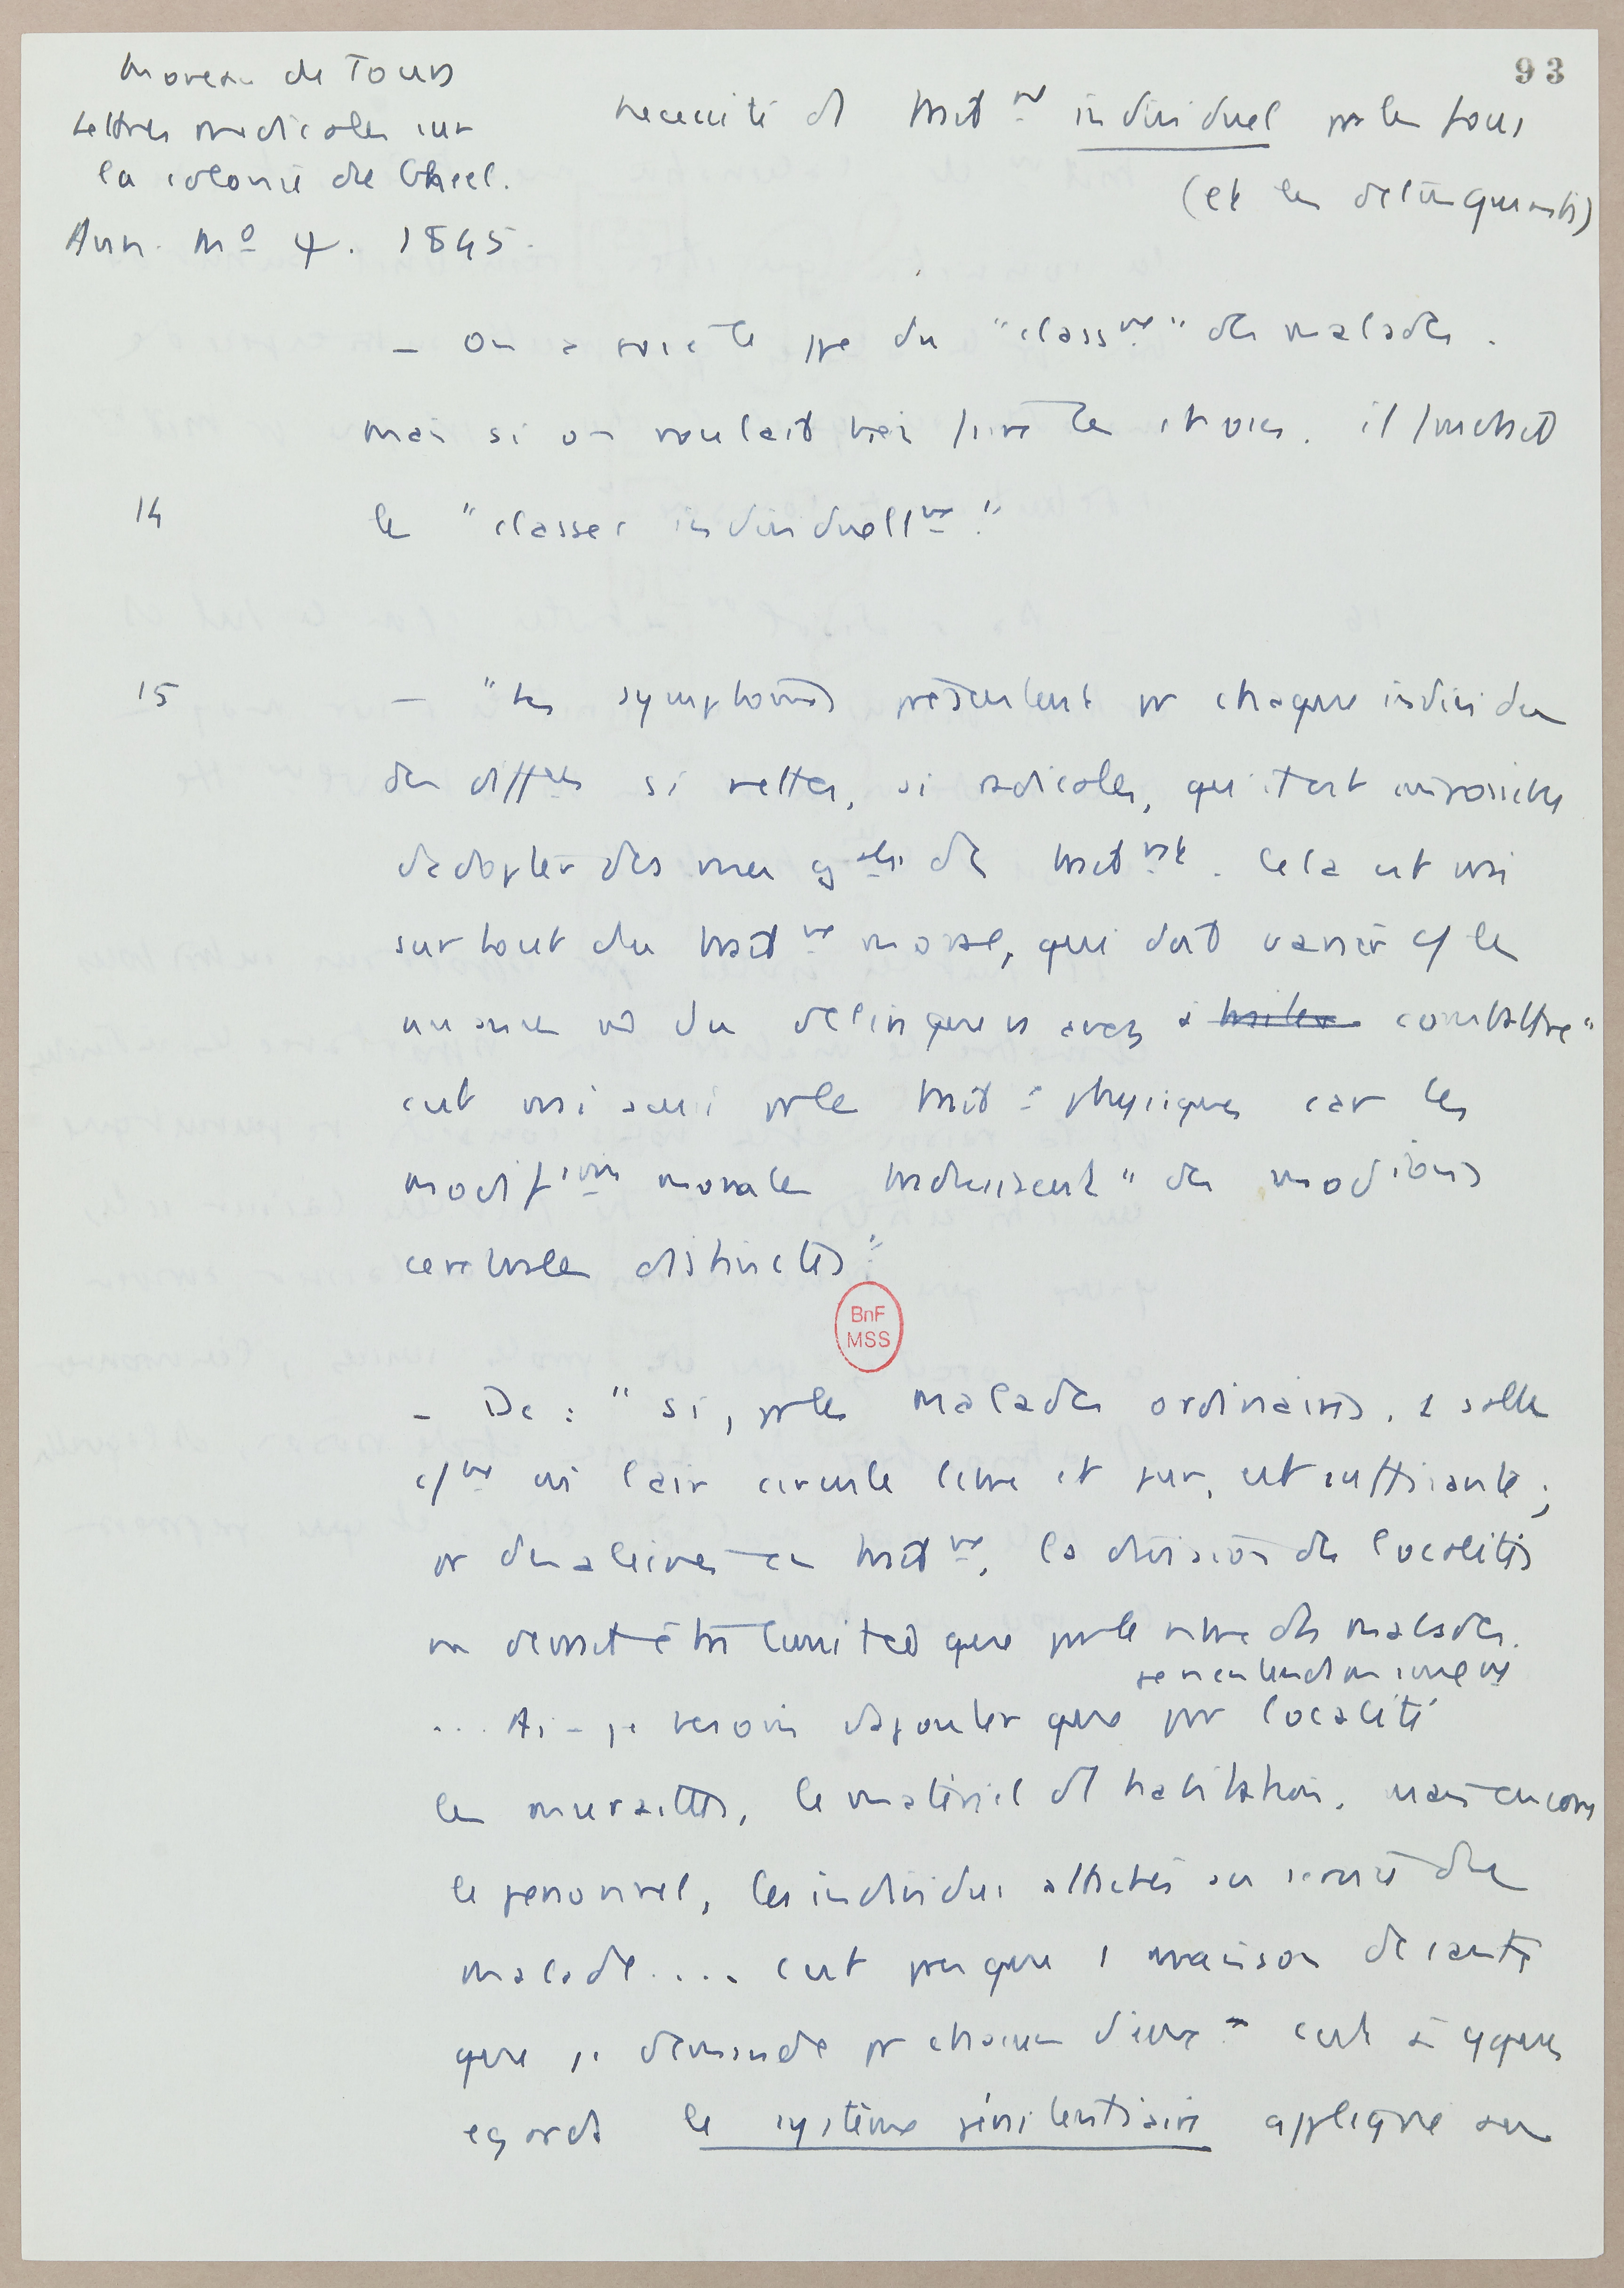 93
Moreau de Tours
Lettres medicales sur
la colonie de Gheel.
Ann. Mº 4. 1845.
necessité d trait^nt individuel pr les fous
(et les delinquants)
- On a posé le pe du "class^nt" des malades.
mais si on voulait bien faire les choses, il faudrait
14 les "classer individuell^nt."
15 - "Les symptomes présentent pr chaque individu
des diff^ces si nettes, si radicales, qu'il est impossible
d'adopter des vues g^ales de trait^nt. Cela est vrai
surtout du trait^nt moral, qui doit varier c/ les
nuances du délire que vs avez à traiter combattre"
c'est vrai aussi pr les trait^ts physiques car les
modif^ions morales traduisent "des mod^ions
cerebrales distinctes".
BnF
MSS
- Dc : "si, pr les malades ordinaires, 1 salle
c/^ne où l'air circule libre et pur, est suffisante ;
pr des aliénés en trait^nt, la division des localités
ne devrait être limitée que par le nbre des malades.
... Ai-je besoin d'ajouter que par localité
je n'entends non seul^nt
les murailles, le matériel d l'habitation, mais encore
le personnel, les individus attachés au service du
malade.... c'est presque 1 maison de santé
que je demande pr chacun d'eux - c'est à qques
egards le système pénitentiaire appliqué au